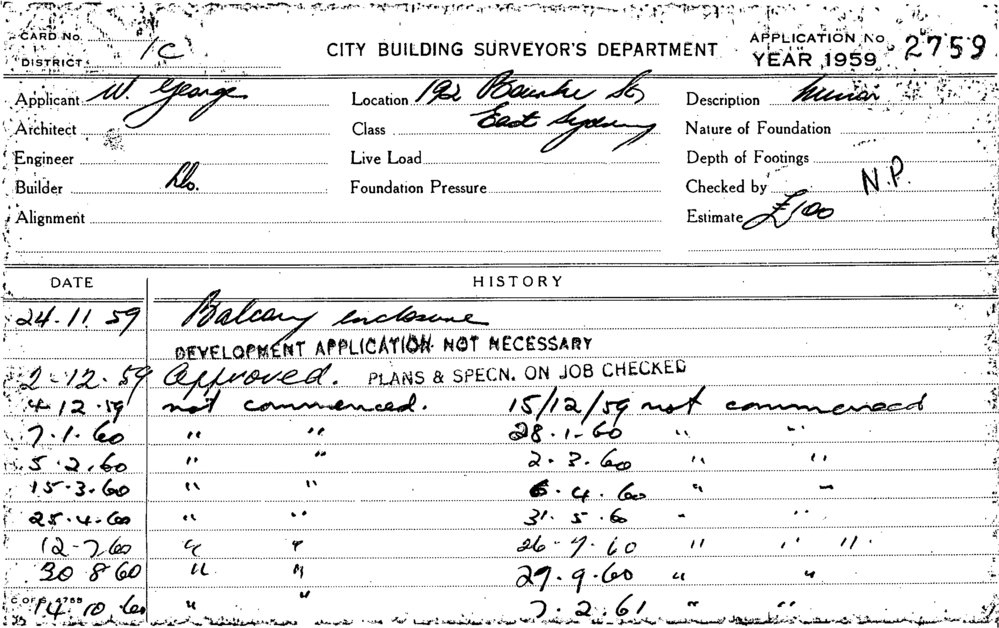 CARD No. 1C CITY BUILDING SURVEYOR'S DEPARTMENT APPLICATION No 2759
DISTRICT YEAR 1959
Applicant W. George Location 192 Bourke St, Description Minor
Architect Class East Sydney Nature of Foundation
Engineer Live Load Depth of Footings
Builder Do. Foundation Pressure Checked by N.P.
Alignment Estimate £100
DATE HISTORY
24.11.59 Balcony enclosure
DEVELOPMENT APPLICATION NOT NECESSARY
2-12.59 Approved. PLANS & SPECN. ON JOB CHECKED
4-12.59 not commenced. 15/12/59 not commenced
7.1.60 " " 28.1-60 " "
5.2.60 " " 2.3.60 " "
15.3.60 " " 6.4.60 " "
25.4.60 " " 31.5.60 " "
12-7.60 " " 26-7.60 " " "
30 8 60 " " 29.9.60 " "
C OF S 4755
14.10.60 " " 7.2.61 " "